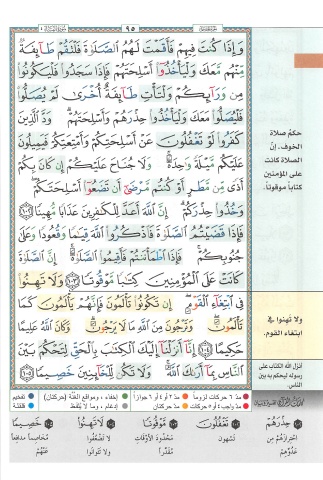 ٩٥
وَإِذَا كُنتَ فِيهِمْ فَأَقَمْتَ لَهُمُ ٱلصَّلَوٰةَ فَلْتَقُمْ طَآئِفَةٌ
مِّنْهُم مَّعَكَ وَلْيَأْخُذُوٓا۟ أَسْلِحَتَهُمْ فَإِذَا سَجَدُوا۟ فَلْيَكُونُوا۟
مِن وَرَآئِكُمْ وَلْتَأْتِ طَآئِفَةٌ أُخْرَىٰ لَمْ يُصَلُّوا۟
فَلْيُصَلُّوا۟ مَعَكَ وَلْيَأْخُذُوا۟ حِذْرَهُمْ وَأَسْلِحَتَهُمْ وَدَّ ٱلَّذِينَ
كَفَرُوا۟ لَوْ تَغْفُلُونَ عَنْ أَسْلِحَتِكُمْ وَأَمْتِعَتِكُمْ فَيَمِيلُونَ
عَلَيْكُم مَّيْلَةً وَٰحِدَةً وَلَا جُنَاحَ عَلَيْكُمْ إِن كَانَ بِكُمْ
أَذًى مِّن مَّطَرٍ أَوْ كُنتُم مَّرْضَىٰٓ أَن تَضَعُوٓا۟ أَسْلِحَتَكُمْ
وَخُذُوا۟ حِذْرَكُمْ إِنَّ ٱللَّهَ أَعَدَّ لِلْكَٰفِرِينَ عَذَابًا مُّهِينًا ١٠٢
فَإِذَا قَضَيْتُمُ ٱلصَّلَوٰةَ فَٱذْكُرُوا۟ ٱللَّهَ قِيَٰمًا وَقُعُودًا وَعَلَىٰ
جُنُوبِكُمْ فَإِذَا ٱطْمَأْنَنتُمْ فَأَقِيمُوا۟ ٱلصَّلَوٰةَ إِنَّ ٱلصَّلَوٰةَ
كَانَتْ عَلَى ٱلْمُؤْمِنِينَ كِتَٰبًا مَّوْقُوتًا ١٠٣ وَلَا تَهِنُوا۟
فِى ٱبْتِغَآءِ ٱلْقَوْمِ إِن تَكُونُوا۟ تَأْلَمُونَ فَإِنَّهُمْ يَأْلَمُونَ كَمَا
تَأْلَمُونَ وَتَرْجُونَ مِنَ ٱللَّهِ مَا لَا يَرْجُونَ وَكَانَ ٱللَّهُ عَلِيمًا
حَكِيمًا ١٠٤ إِنَّآ أَنزَلْنَآ إِلَيْكَ ٱلْكِتَٰبَ بِٱلْحَقِّ لِتَحْكُمَ بَيْنَ
ٱلنَّاسِ بِمَآ أَرَىٰكَ ٱللَّهُ وَلَا تَكُن لِّلْخَآئِنِينَ خَصِيمًا ١٠٥
حكمُ صلاة
الخوف. إنّ
الصلاة كانت
على المؤمنين
كتاباً موقوتاً.
ولا تهنوا في
ابتغاء القوم.
أنزل الله الكتاب على
رسوله ليحكم به بين
الناس.
مدّ ٦ حركات لزوماً مدّ ٢ أو ٤ أو ٦ جوازاً إخفاء، ومواقع الغُنّة (حركتان) تفخيم
مدّ واجب ٤ أو ٥ حركات مدّ حركتان إدغام، وما لا يُلفظ قلقلة
حِذْرَهُمْ
احترازَهُمْ مِن
عَدُوِّهِمْ
تَغْفُلُونَ
تَسْهون
مَوْقُوتًا
مَحْدُودَ الأوْقَاتِ
مُقَدَّراً
لَا تَهِنُوا
لا تَضْعُفُوا
ولا تَتَوانَوا
خَصِيمًا
مُخَاصِماً مدافعاً
عنهم